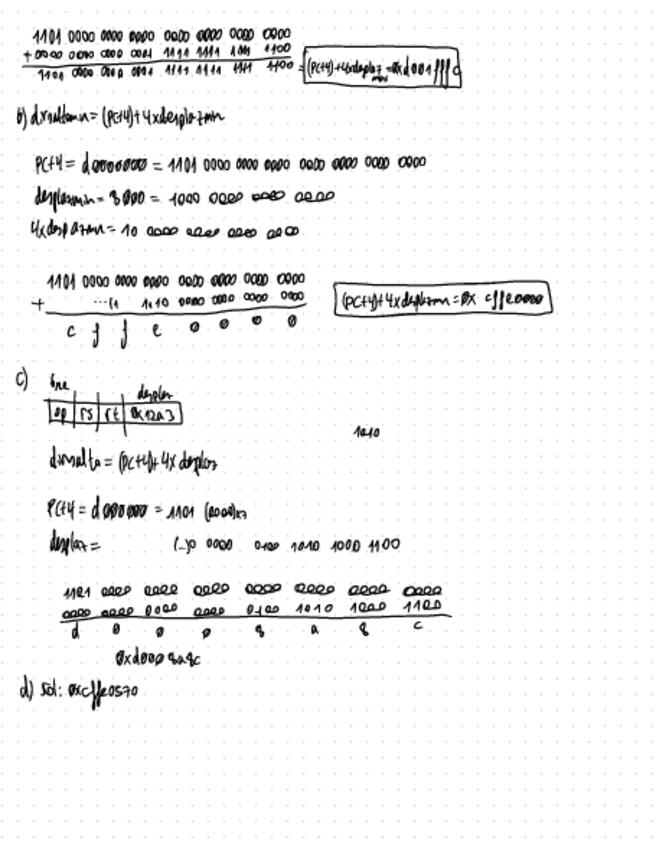 1101 0000 0000 0000 0000 0000 0000 0000
+ 0000 0000 0000 0001 1111 1111 1111 1100
1101 0000 0000 0001 1111 1111 1111 1100 = (PC+4)+4xdesplaz max = 0xd001fffc
b) dirsaltomin = (PC+4)+4xdesplazmin
PC+4 = d0000000 = 1101 0000 0000 0000 0000 0000 0000 0000
desplazmin = 8000 = 1000 0000 0000 0000
4xdesplazmin = 10 0000 0000 0000 0000
1101 0000 0000 0000 0000 0000 0000 0000
+ ...11 1110 0000 0000 0000 0000
c f f e 0 0 0 0
(PC+4)+4xdesplazmin = 0x cffe0000
c) bne
desplaz
op rs rt 0x12a3
1010
dirsalto = (PC+4)+4x desplaz
PC+4 = d000000 = 1101 (0000)x7
desplaz = (...)0 0000 0100 1010 1000 1100
1101 0000 0000 0000 0000 0000 0000 0000
0000 0000 0000 0000 0100 1010 1000 1100
d 0 0 0 8 a 8 c
0xd0008a8c
d) sol: 0xcffe0570